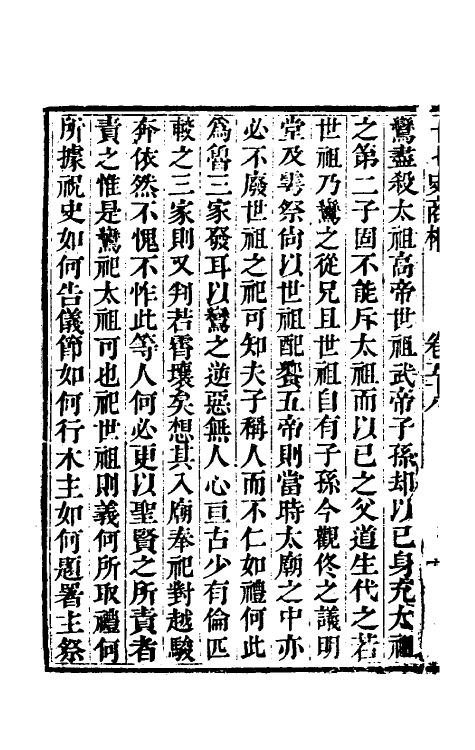 十七史商榷　卷五十八
鸞盡殺太祖高帝世祖武帝子孫却以已身充太祖
之第二子固不能斥太祖而以已之父道生代之若
世祖乃鸞之從兄且世祖自有子孫今觀佟之議明
堂及雩祭尙以世祖配饗五帝則當時太廟之中亦
必不廢世祖之祀可知夫子稱人而不仁如禮何此
爲魯三家發耳以鸞之逆惡無人心亘古少有倫匹
較之三家則又判若霄壤矣想其入廟奉祀對越駿
奔依然不愧不怍此等人何必更以聖賢之所責者
責之惟是鸞祀太祖可也祀世祖則義何所取禮何
所據祝史如何告儀節如何行木主如何題署主祭